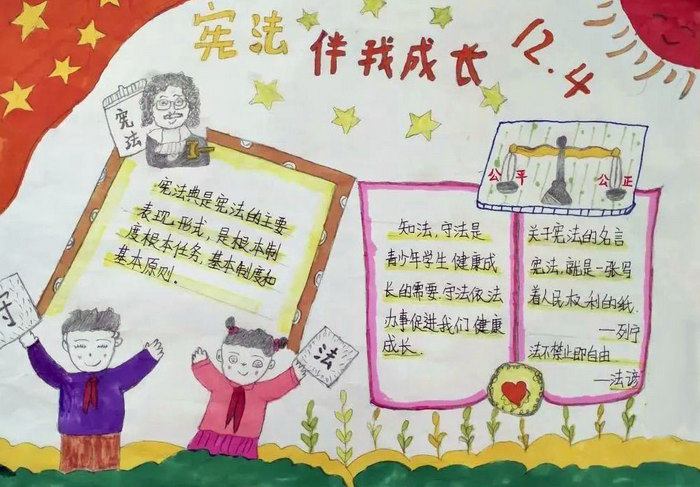 宪法
伴我成长
12.4
宪法
宪法典是宪法的主要
表现形式，是根本制
度根本任务，基本制度和
基本原则.
公平
公正
知法，守法是
青少年学生健康成
长的需要.守法依法
办事促进我们健康
成长.
关于宪法的名言
宪法，就是一张写
着人民权利的纸.
—列宁
法不禁止即自由
—法谚
守
法